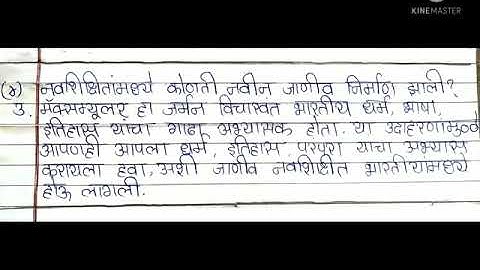 KINEMASTER
(४) नवशिक्षितांमध्ये कोणती नवीन जाणीव निर्माण झाली?
उ. मॅक्सम्यूलर हा जर्मन विचारवंत भारतीय धर्म, भाषा,
इतिहास यांचा गाढा अभ्यासक होता. या उदाहरणामुळे
आपणही आपला धर्म, इतिहास परंपरा यांचा अभ्यास
करायला हवा, अशी जाणीव नवशिक्षीत भारतीयांमध्ये
होऊ लागली.